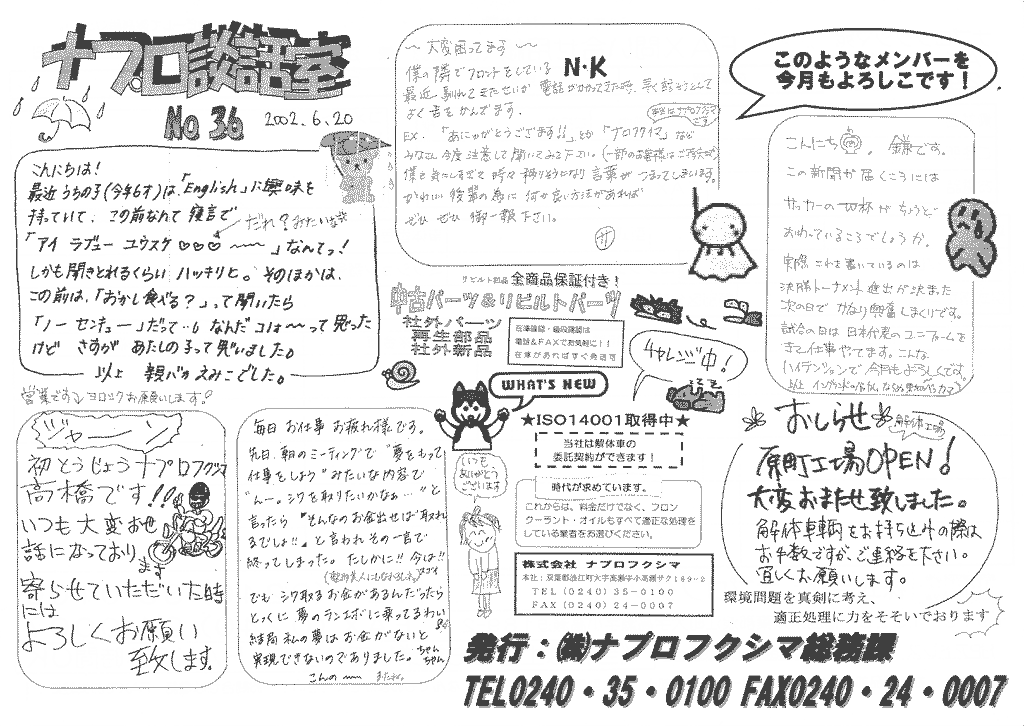 ナプロ談話室
No 36 2002.6.20
こんにちは!
最近うちの子(今年6才)は、「English」に興味を
持っていて、この前なんて寝言で
だれ?みたいな
「アイ ラブュー ユウスケ♡♡♡ 〜〜」なんてっ!
しかも聞きとれるくらい ハッキリと。そのほかは、
この前は、「おかし食べる?」って聞いたら
「ノー センキュー」だって…。なんだコリャ〜〜って思った
けど さすが あたしの子って思いました。
以上 親バカえみこでした。
〜 大変困ってます 〜
僕の隣でフロントをしている N・K
最近馴れてきたせいか 電話がかかってきた時、
よく舌をかんでます。
EX. 「ありゃがとうございます!!」とか「ナプロフクイマ」など
みなさん今度注意して聞いてみて下さい。(一部のお客様はご存知)
かわいい後輩の為に 何か良い方法があれば
ぜひ ぜひ 御一報下さい。
サ
このようなメンバーを
今月もよろしこです!
こんにち 。鎌です。
この新聞が届くころには
サッカーのW杯がちょうど
おわっているころでしょうか。
実際これを書いているのは
決勝トーナメント進出が決まった
次の日で かなり興奮しまくりです。
試合の日は 日本代表のユニフォームを
きて仕事やってます。こんな
ハイテンションで今月もよろしくです。
リビルト部品 全商品保証付き!
中古パーツ&リビルトパーツ
社外パーツ
再生部品
社外新品
在庫確認・価格確認は
電話&FAXでお気軽に!!
在庫があればすぐ発送可
チャレンジ中!
WHAT'S NEW
★ISO14001取得中★
当社は解体車の
委託契約ができます!
時代が求めています。
これからは、料金だけでなく、フロン
クーラント・オイルもすべて適正な処理を
している業者をお選びください。
株式会社 ナプロフクシマ
本社:双葉郡浪江町大字高瀬字小高瀬サク169−2
TEL (0240) 35−0100
FAX (0240) 24−0007
営業です♪ ヨロシクお願いします!
ジャーン
初とうじょうナプロフクシマ
高橋です!!
いつも大変お世
話になっており
ます
寄らせていただいた時
には
よろしくお願い
致します。
毎日 お仕事 お疲れ様です。
先日、朝のミーティングで "夢をもって
仕事をしよう" みたいな内容で
"んー。シワを取りたいかなぁ…" と
言ったら "そんなのお金出せば取れ
るでしょ!!" と言われ その一言で
終ってしまった。たしかに!! 今は!!
でも シワ取るお金があるんだったら
とっくに 夢のランエボに乗ってるわい
結局 私の夢は お金がないと
実現できないのでありました。ちゃんちゃん
こんの 〜〜
いつも
ありがとう
ございます
おしらせ
解体工場
原町工場OPEN!
大変おまたせ致しました。
解体車輌をお持ち込みの際は
お手数ですが、ご連絡を下さい。
宜しくお願いします。
環境問題を真剣に考え、
適正処理に力をそそいでおります
発行:㈱ナプロフクシマ総務課
TEL0240・35・0100 FAX0240・24・0007